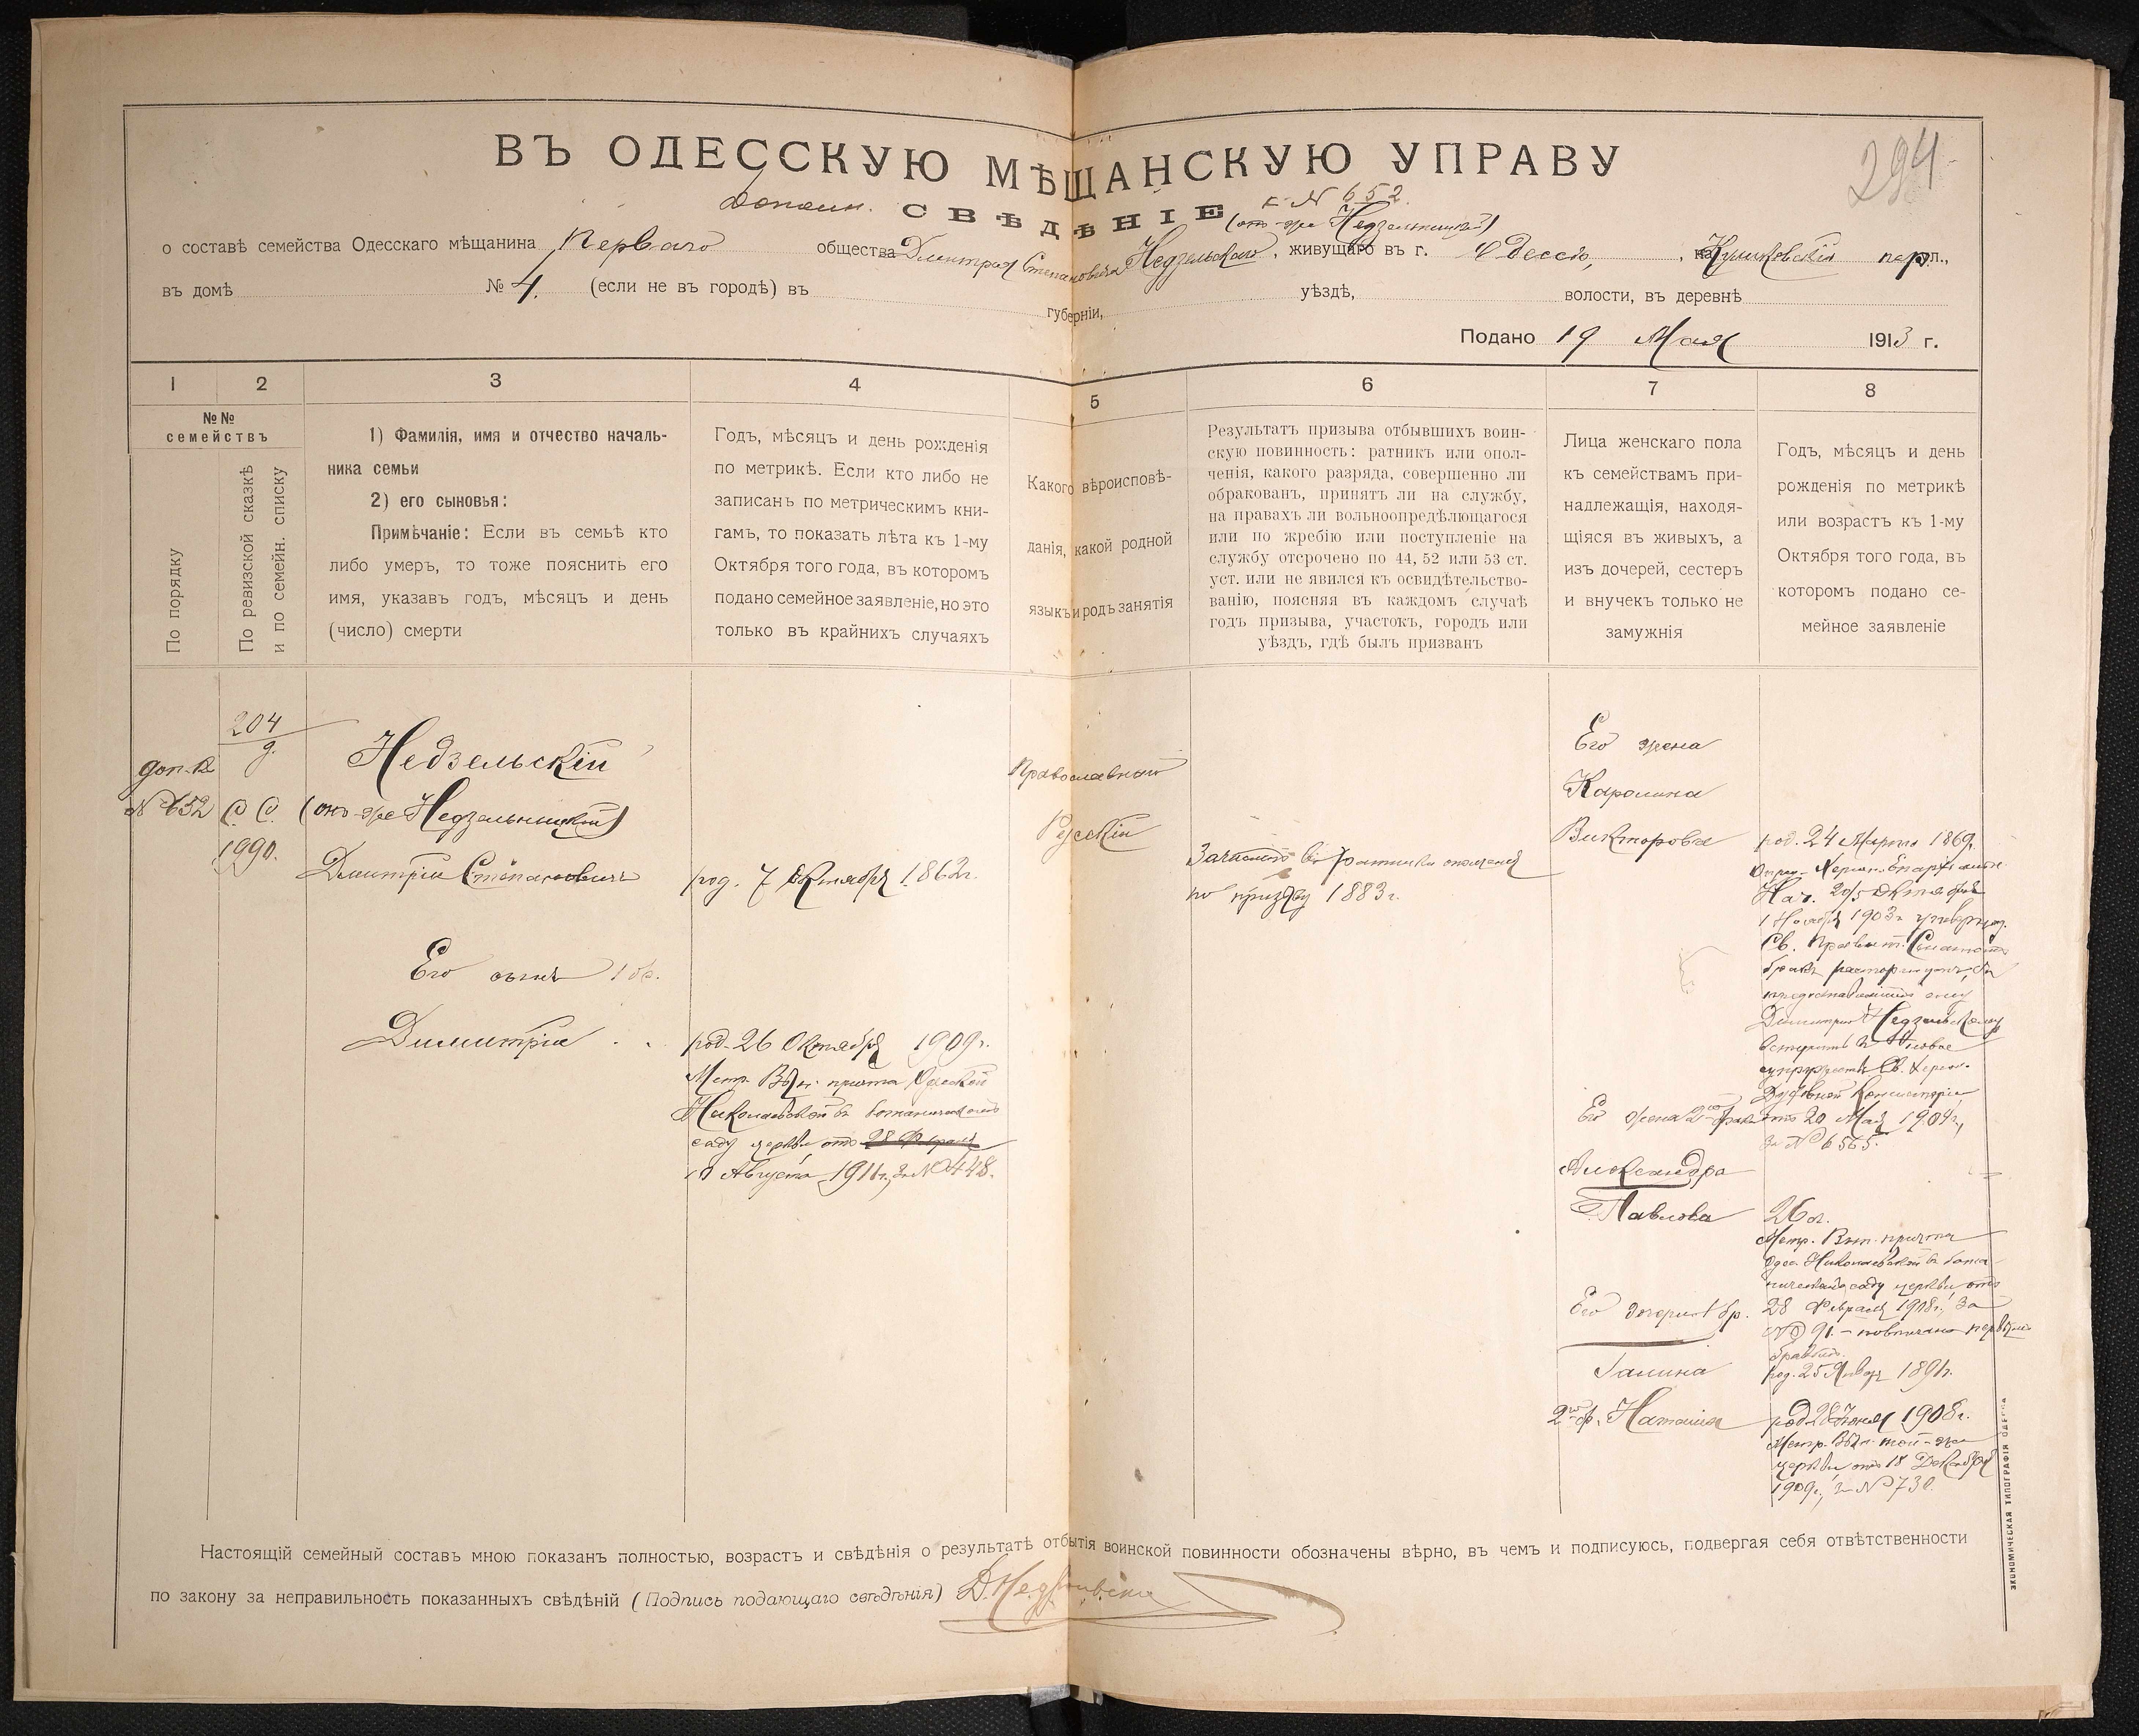 294
ВЪ ОДЕССКУЮ МѢЩАНСКУЮ УПРАВУ
Дополн. СВѢДѢНІЕ к № 652.
(онъ-же Недзельницкій)
о составѣ семейства Одесскаго мѣщанина Перваго общества Дмитрія Степановича Недзельскаго, живущаго въ г. Одессѣ, на Куликовскій пер. ул.,
въ домѣ № 4. (если не въ городѣ) въ губерніи, уѣздѣ, волости, въ деревнѣ
Подано 19 Мая 1913 г.
1 2 3 4 5 6 7 8
№№ семействъ
По порядку
По ревизской сказкѣ и по семейн. списку
1) Фамилія, имя и отчество началь-
ника семьи
2) его сыновья:
Примѣчаніе: Если въ семьѣ кто
либо умеръ, то тоже пояснить его
имя, указавъ годъ, мѣсяцъ и день
(число) смерти
Годъ, мѣсяцъ и день рожденія
по метрикѣ. Если кто либо не
записанъ по метрическимъ кни-
гамъ, то показать лѣта къ 1-му
Октября того года, въ которомъ
подано семейное заявленіе, но это
только въ крайнихъ случаяхъ
Какого вѣроисповѣ-
данія, какой родной
языкъ и родъ занятія
Результатъ призыва отбывшихъ воин-
скую повинность: ратникъ или опол-
ченія, какого разряда, совершенно ли
обракованъ, принятъ ли на службу,
на правахъ ли вольноопредѣлющагося
или по жребію или поступленіе на
службу отсрочено по 44, 52 или 53 ст.
уст. или не явился къ освидѣтельство-
ванію, поясняя въ каждомъ случаѣ
годъ призыва, участокъ, городъ или
уѣздъ, гдѣ былъ призванъ
Лица женскаго пола
къ семействамъ при-
надлежащія, находя-
щіяся въ живыхъ, а
изъ дочерей, сестеръ
и внучекъ только не
замужнія
Годъ, мѣсяцъ и день
рожденія по метрикѣ
или возрастъ къ 1-му
Октября того года, въ
которомъ подано се-
мейное заявленіе
доп. к
№ 652
204
д.
С. С.
1990.
Недзельскій
(онъ-же Недзельницкій)
Дмитрій Степановичъ
Его сынъ 1 бр.
Димитрій
род. 7 Октября 1862 г.
род. 26 Октября 1909 г.
Метр. Вып. причта Одесской
Николаевской въ ботаническомъ
саду церкви отъ 28 Февраля
10 Августа 1911 г., за № 448.
Православный
Русскій
Зачисленъ въ ратники ополченія
по призыву 1883 г.
Его жена
Каролина
Викторова
Его жена 2го брака
Александра
Павлова
Его дочери 1 бр.
Галина
2го б. Наталія
род. 24 Марта 1869 г.
Опред. Херсон. Епархіальн.
Нач. 20/5 Октября
1 Ноября 1903 г. утвержд.
Св. Правит. Синодомъ
бракъ расторгнутъ, съ
предоставленіемъ ему
Димитрію Недзельскому
вступить въ новое
супружество Св. Херсон.
Духовной Консисторіи
отъ 20 Мая 1904 г.,
за № 6565.
26 л.
Метр. Вып. причта
Одес. Николаевской въ бота-
ническомъ саду церкви отъ
28 Февраля 1908 г., за
№ 91. – повѣнчана первымъ
бракомъ.
род. 25 Января 1891 г.
род. 28 Іюня 1908 г.
Метр. Вып. той-же
церкви отъ 18 Декабря
1909 г., за № 730.
Настоящій семейный составъ мною показанъ полностью, возрастъ и свѣдѣнія о результатѣ отбытія воинской повинности обозначены вѣрно, въ чемъ и подписуюсь, подвергая себя отвѣтственности
по закону за неправильность показанныхъ свѣдѣній (Подпись подающаго свѣдѣнія) Д. Недзельскій
ЭКОНОМИЧЕСКАЯ ТИПОГРАФІЯ ОДЕССА